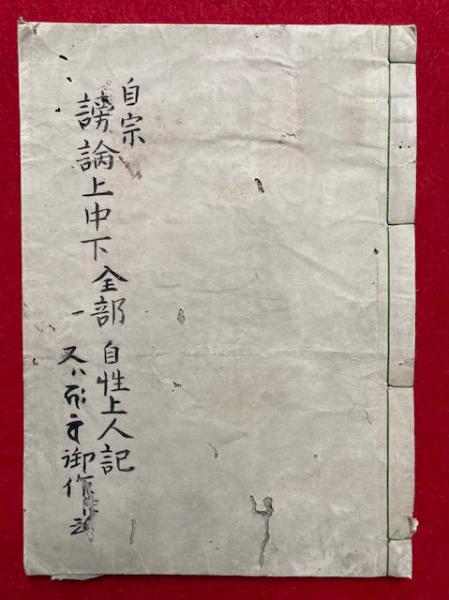 自宗
謗論上中下全部
自性上人記
又ハ
御作